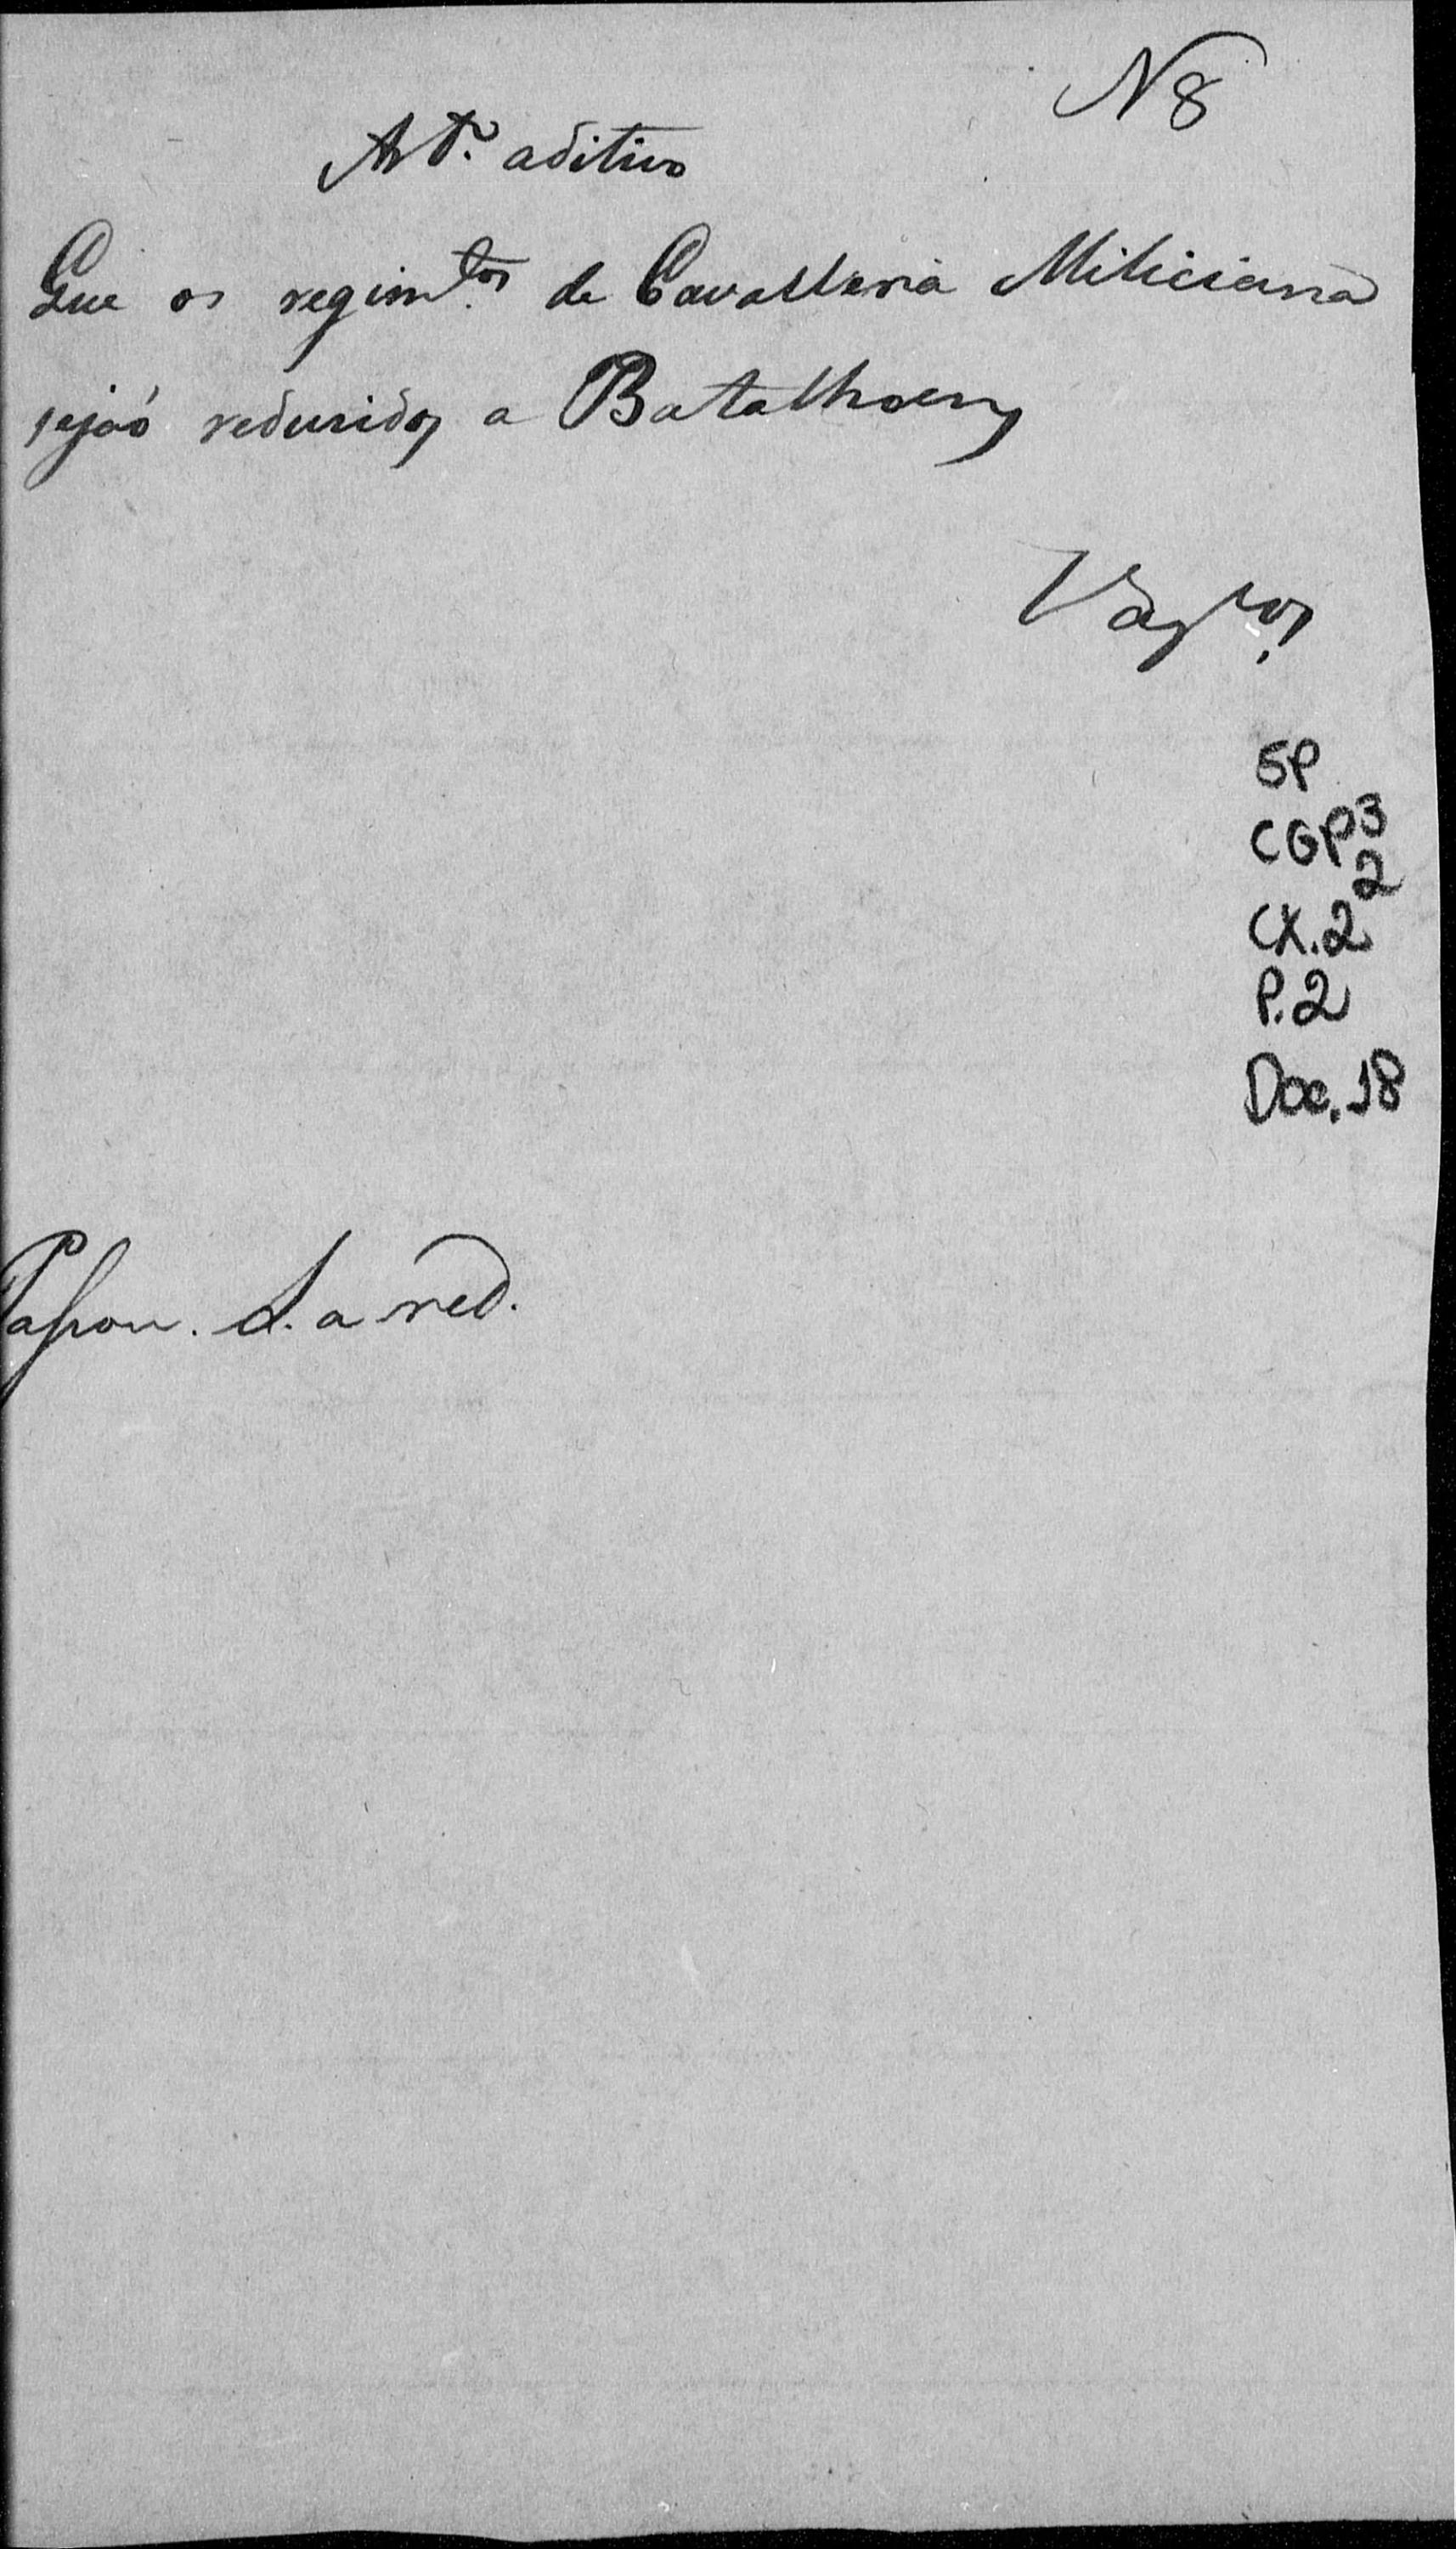 N 8
Art.º aditivo
Que os regim.tos de Cavalleria Miliciana
sejaó redusidos a Batalhoens
Vas.cos
SP
CGP3
2
CX.2
P.2
Doc. 18
Passou. S. a red.